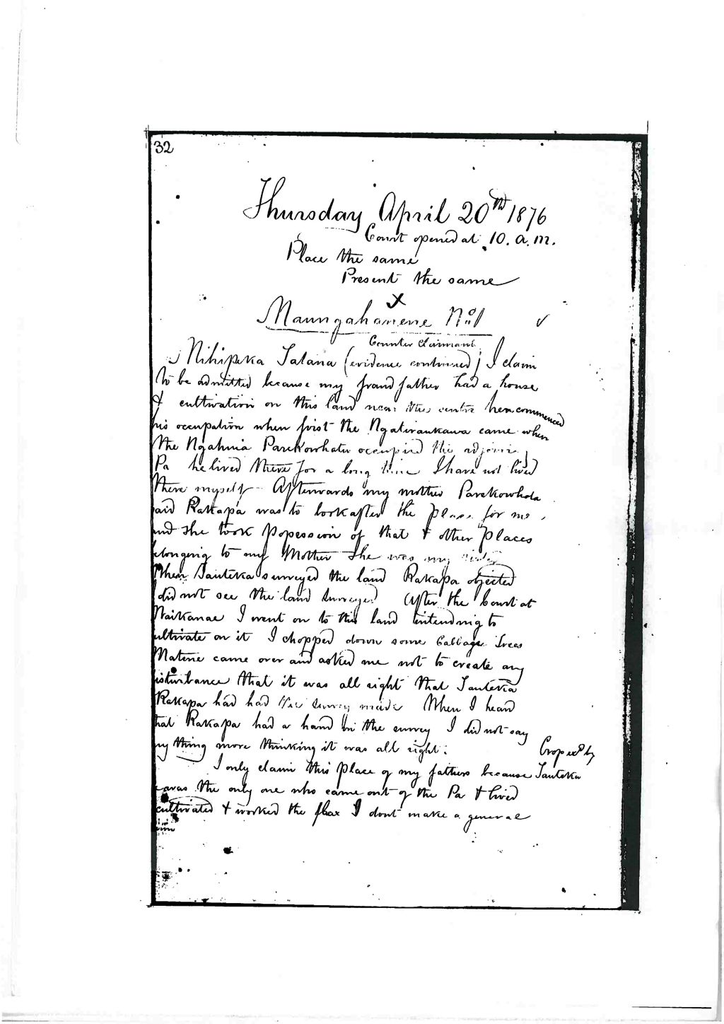 32
Thursday April 20th 1876
Court opened at 10. a.m.
Place the same
Present the same
x
Maungahanene No 1
Counter Claimant
Nihipeka Tatana (evidence continued) I claim
to be admitted because my grandfather had a house
& cultivation on this land near the centre commenced
his occupation when first the Ngatiraukawa came when
the Ngahuia Parekowhatu occupied the
Pa he lived there for a long time I have not lived
there myself - Afterwards my mother Parekowhatu
said Rakapa was to look after the place for me,
and she took possession of that & other places
belonging to my Mother she was my
When Tauteka surveyed the land Rakapa objected
I did not see the land surveyed After the Court at
Waikanae I went on to this land intending to
cultivate on it I chopped down some Cabbage trees
Matene came over and asked me not to create any
disturbance that it was all right that Tauteka
Rakapa had had the survey made When I heard
that Rakapa had a hand in the survey I did not say
any thing more thinking it was all right. by
I only claim this place of my fathers because Tauteka
was the only one who came out of the Pa & lived
cultivated & worked the flax I dont make a general